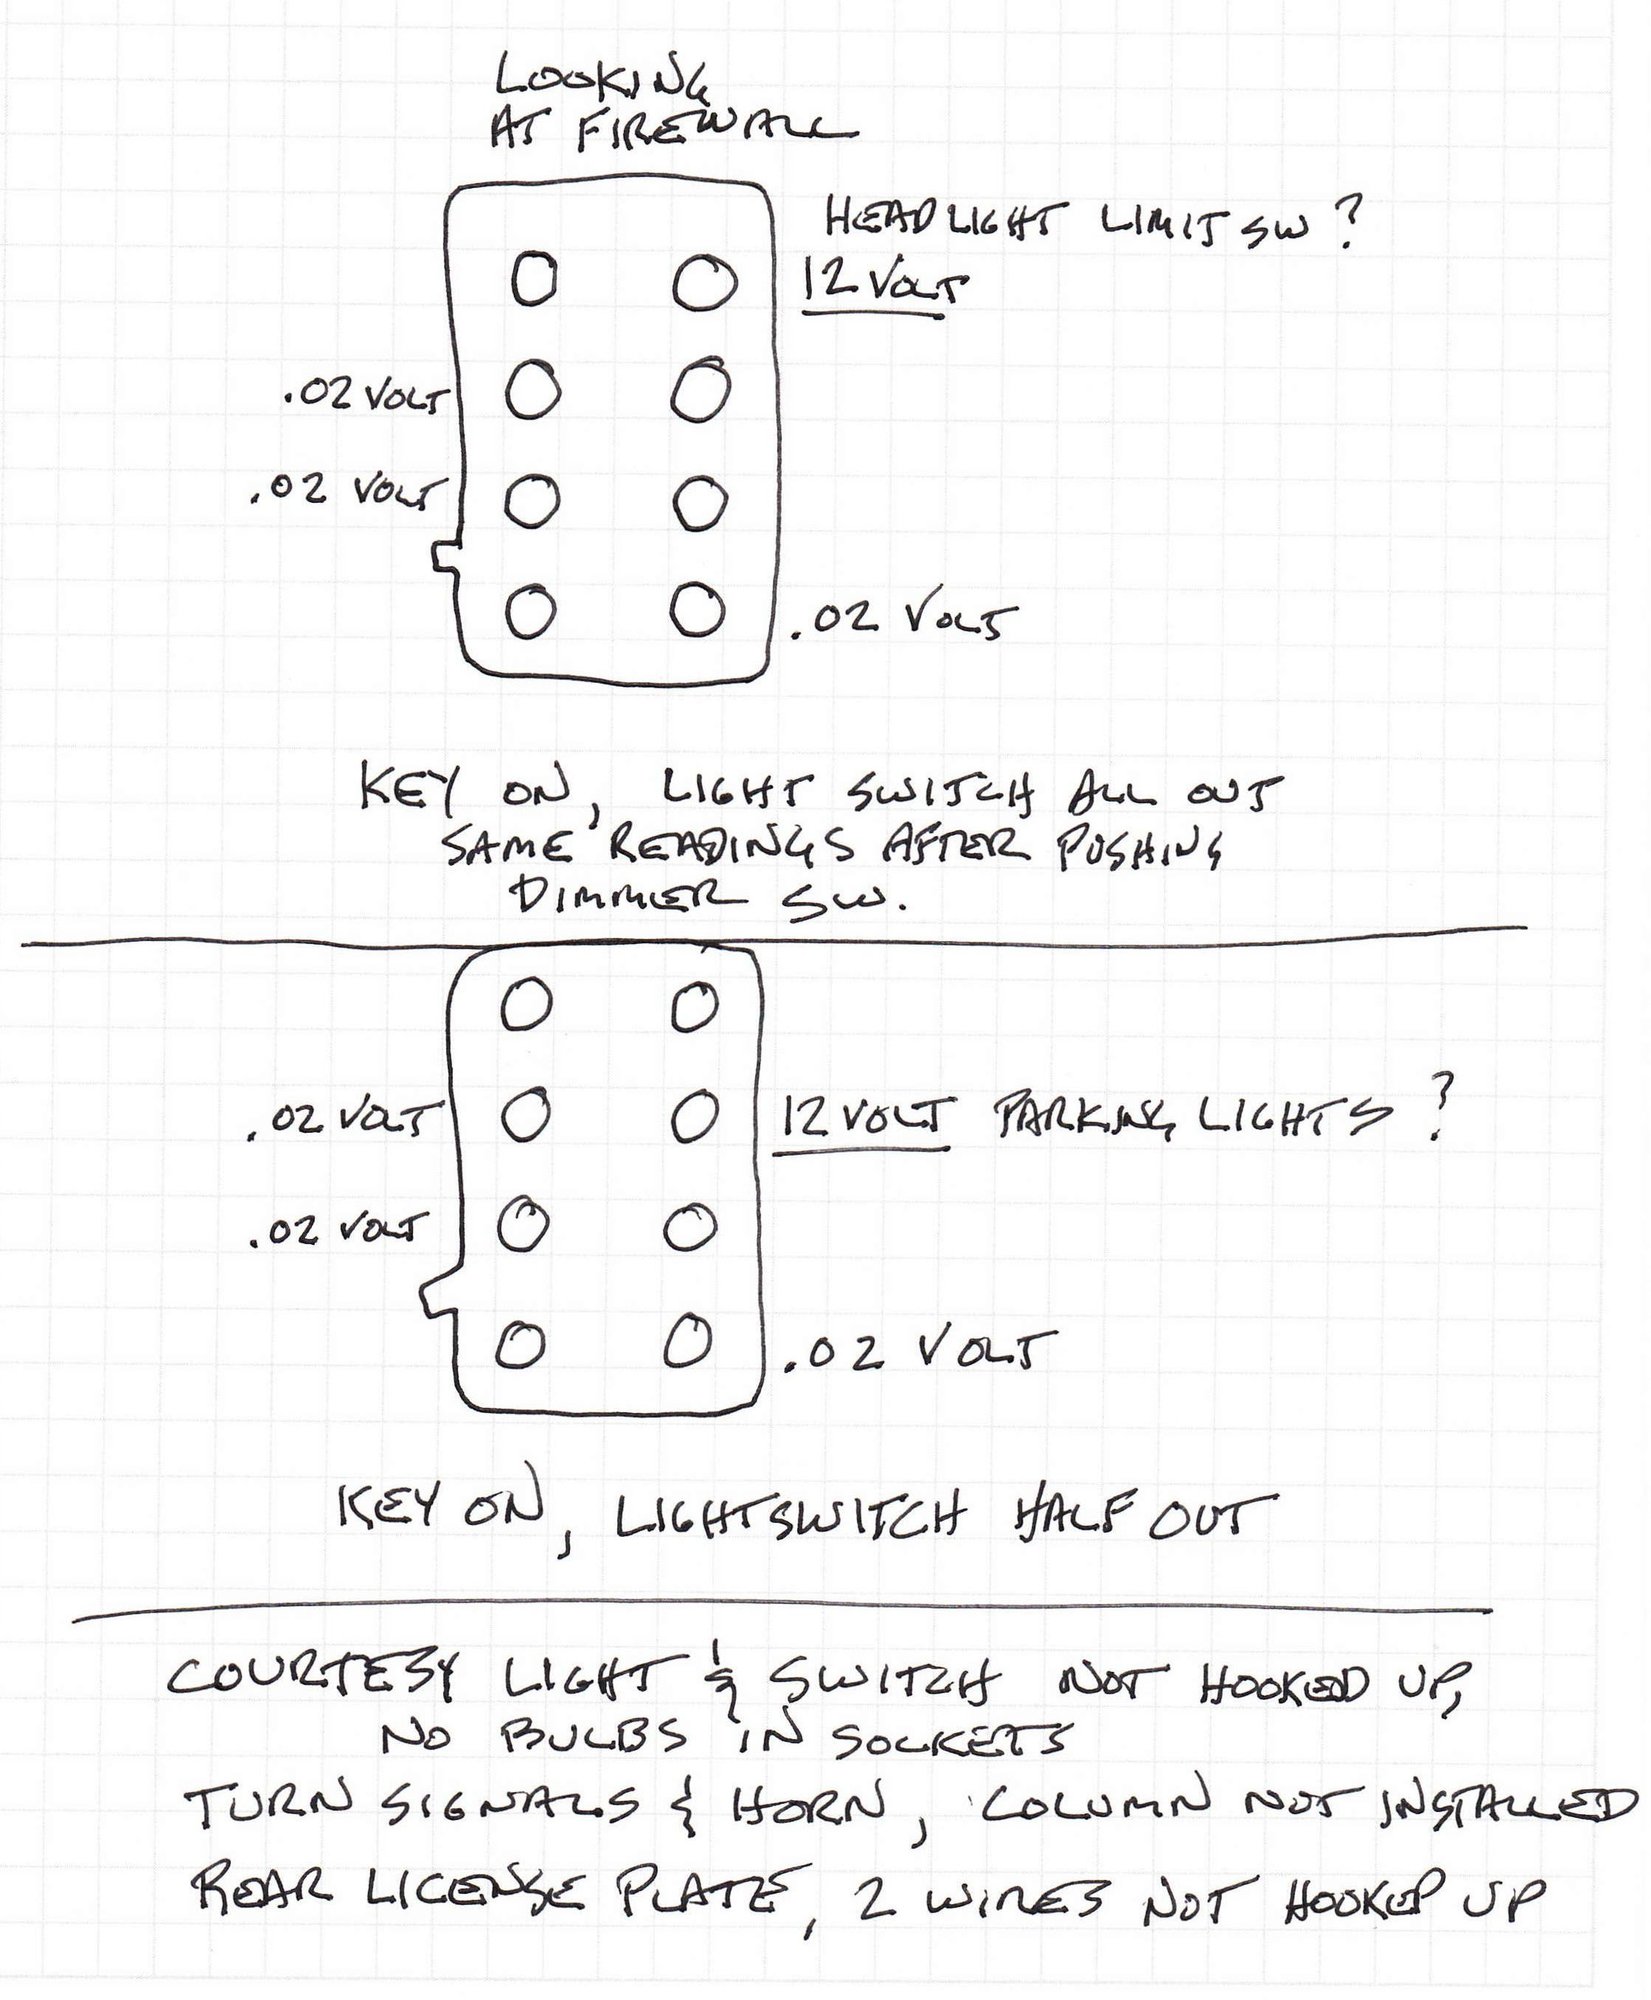 LOOKING
AT FIREWALL
HEADLIGHT LIMIT SW ?
12 VOLT
.02 VOLT
.02 VOLT
.02 VOLT
KEY ON, LIGHT SWITCH ALL OUT
SAME READINGS AFTER PUSHING
DIMMER SW.
.02 VOLT
12 VOLT PARKING LIGHTS ?
.02 VOLT
.02 VOLT
KEY ON, LIGHTSWITCH HALF OUT
COURTESY LIGHT & SWITCH NOT HOOKED UP,
NO BULBS IN SOCKETS
TURN SIGNALS & HORN, COLUMN NOT INSTALLED
REAR LICENSE PLATE, 2 WIRES NOT HOOKED UP